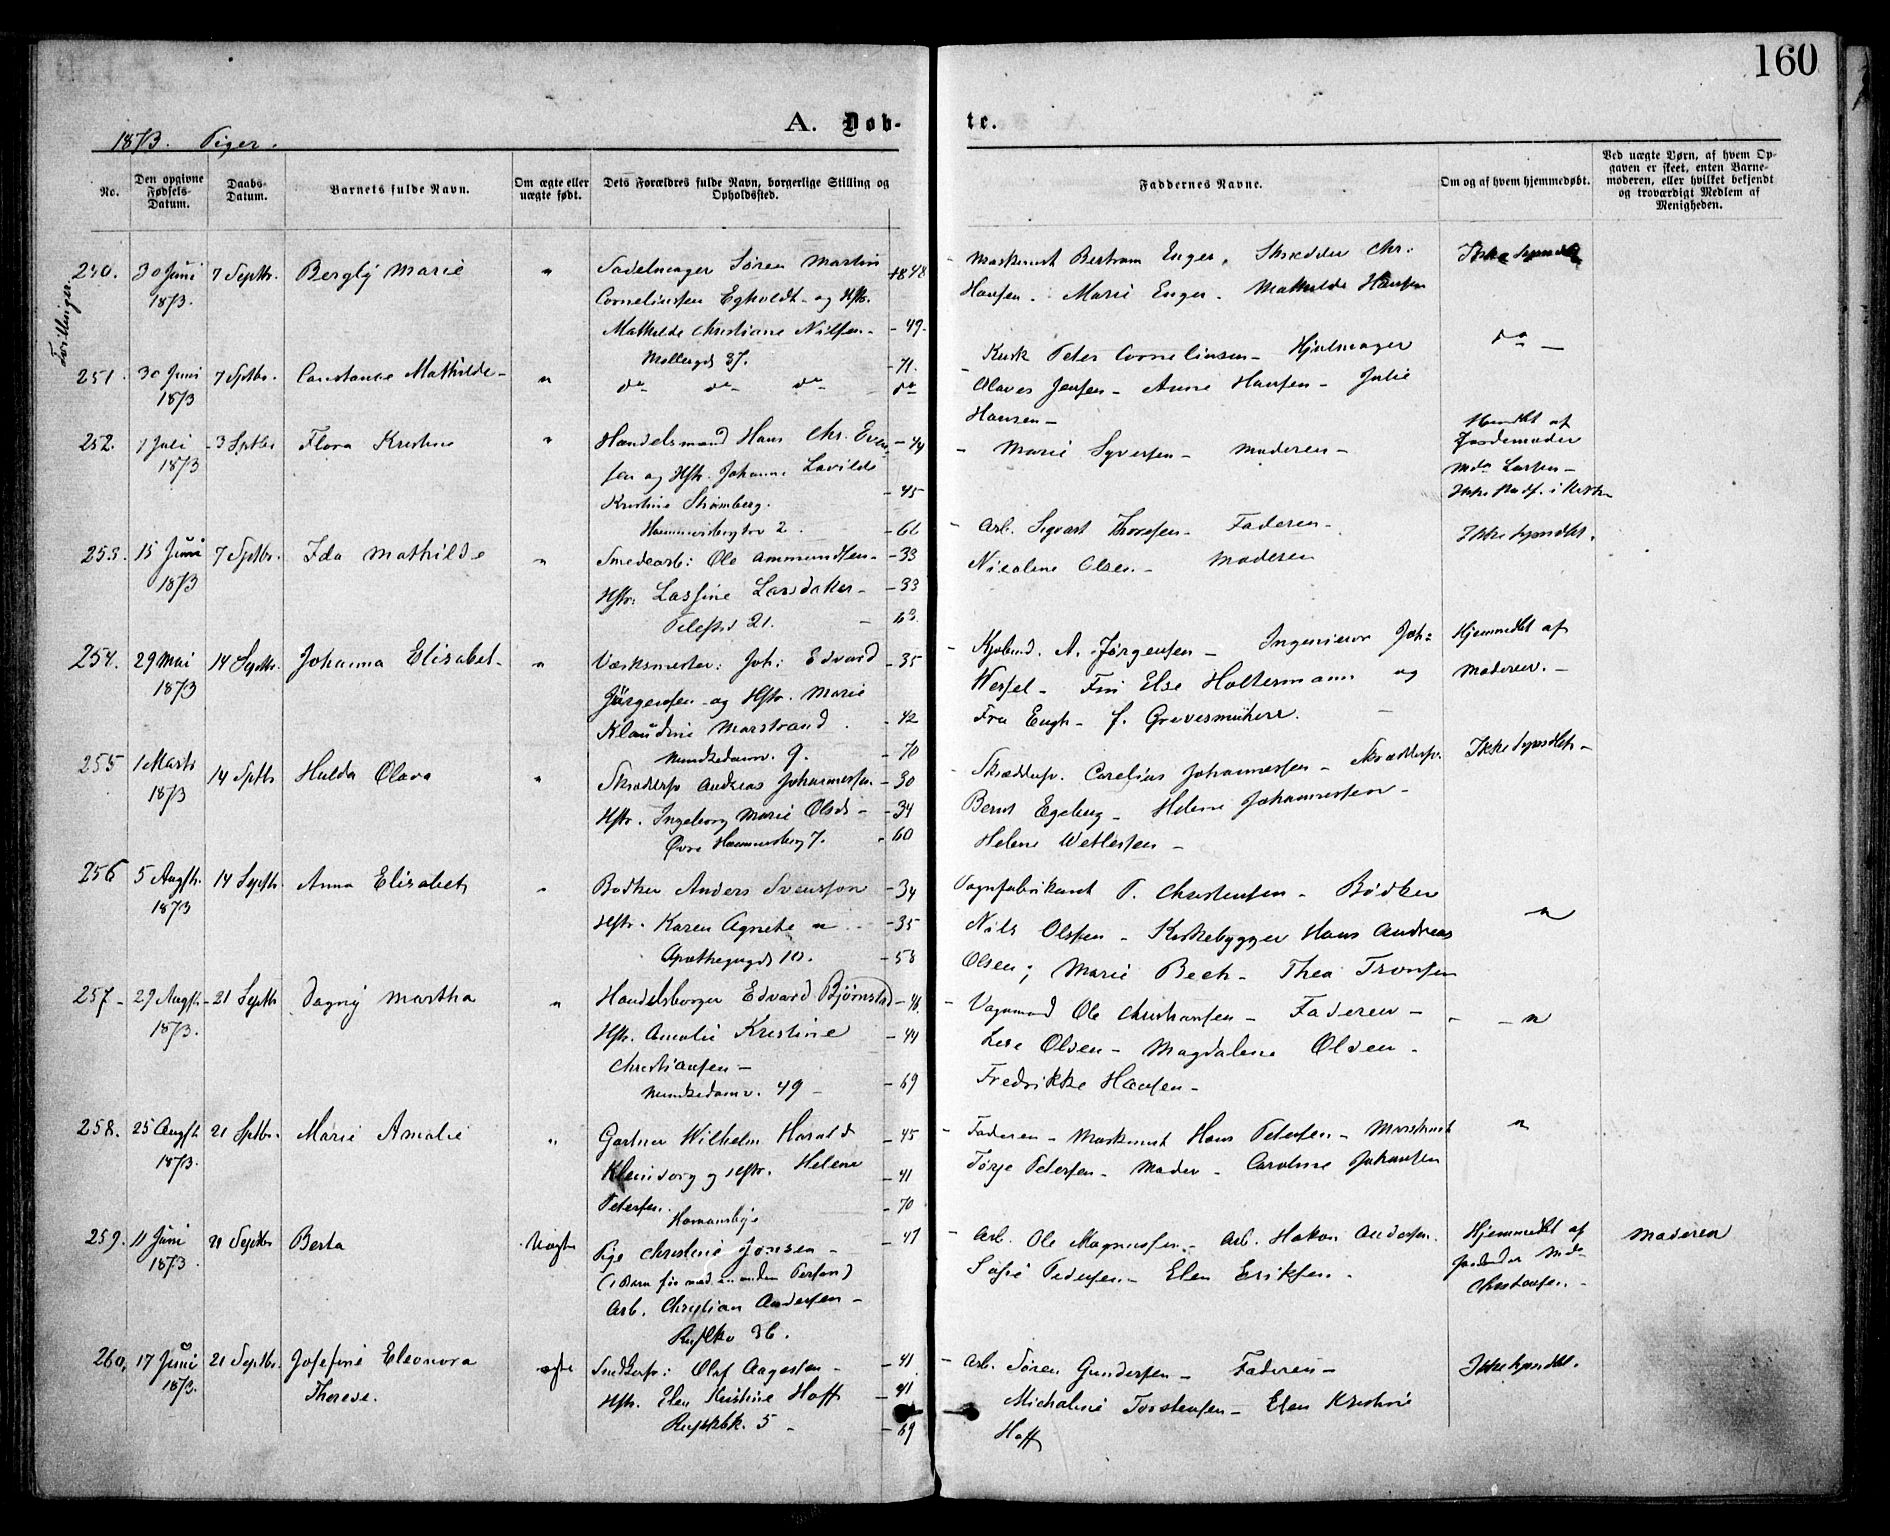 160
A. Døb-
te.
1873. Piger.
No.
Den opgivne Fødsels-Datum.
Daabs-Datum.
Barnets fulde Navn.
Om ægte eller uægte født.
Dets Forældres fulde Navn, borgerlige Stilling og Opholdssted.
Faddernes Navne.
Om og af hvem hjemmedøbt.
Ved uægte Børn, af hvem Op-
gaven er skeet, enten Barne-
moderen, eller hvilket bekjendt
og troværdigt Medlem af
Menigheden.
Tvillinger.
250. 30 Juni 7 Septbr. Bergly Marie " Sadelmager Søren Martin 48
1873. Corneliussen Egholdt - og Hstr.
Mathilde Christiane Nilsen - - 49.
Møllergd. 37. - 71.
- Maskinist Bertram Enger, Skrædder Chr:
Hansen. Marie Enger. Mathilde Hansen
Ikke
251. 30 Juni 7 Septbr. Constance Mathilde - " do do do do
1873
- Kusk Peter Corneliusen - Hjulmager
Olaves Jensen - Anne Hansen - Julie
Hansen -
do -
252. 1 Juli 3 Septbr Flora Kristine " Handelsmand Hans Chr. Even - 44
1873 sen og Hstr. Johanne Lavilde
Kristine Strømberg. - 45
Hammersborgtorv 2. - 66
- Marie Syversen - Moderen -
af
Jordemoder
Larsen -
253. 15 Juni 7 Septbr. Ida Mathilde " Smedearb: Ole Ammundsen - - 33
1873 Hstr: Lassine Landaker - - 33
21. - 63.
- Arb. Sigvart Thoresen - Faderen -
Nicoline Olsen - Moderen
Ikke
254. 29 Mai 14 Septbr. Johanna Elisabet - " Værksmester: Joh: Edvard - 35
1873 Jürgensen og Hstr. Marie
Klaudine Marstrand. - 42
Munkedamv. 9. - 70
- Kjøbmd. A. Jørgensen - Ingenieur Joh:
Wessel - Frk Else Holtermann og
Fru Engh - f.
Hjemmedbt af
Moderen. -
255 1 Marts 14 Septbr Hulda Olava " Skrædersv Andreas Johannessen - 30
1873 Hstr. Ingeborg Marie Olsd - - 34
Øvre Hammersborg 7. - 60
- Skræddersv. Carelius Johannessen - Skræddersv.
Bernt Egeberg - Helene Johannessen -
Helene Wetlesen -
Ikke
256 5 Augst. 14 Septbr. Anna Elisabet " Bødker Anders Svensson - 34
1873 Hstr. Karen Agnete " - 35
Apothegergd. 10. - 58
Vognfabrikant T. Christensen - Bødker
Nils Olsen - Kirkebygger Hans Andreas
Olsen; Marie Bech - Thea Tronsen
"
257 - 29 Augst. - 21 Septbr Dagny Martha " Handelsborger Edvard Bjørnstad - 46.
1873. Hstr. Amalie Kristine - 44
Christiansen -
Munkedamv. 49 - - 69
- Vognmand Ole Christiansen - Faderen -
Lise Olsen - Magdalene Olsen.
Fredrikke Hansen -
- "
258. 25 Augst. 21 Septbr. Marie Amalie " Gartner Wilhelm Harald - 45
1873. Kleindorg og Hstr. Helene - 41
Petersen. - 70
Homansby
- Faderen - Maskinist Hans Petersen - Maskinist
Petersen - Moder - Caroline Johansen
"
259. 11 Juni 21 Septbr Berta Uægte Pige Christine Jonsen - - 47
1873. (1 Barn før med en anden Person)
Arb. Christian Andersen -
36.
- Arb. Ole Magnussen - Arb. Hakon Andersen.
Sofie Pedersen - Elen Eriksen.
Hjemmedbt af
Christensen. -
Moderen
260, 17 Juni 21 Septbr. Josefine Eleonora ægte Snedkersv: Olaf Aagesen - - 41
1873. Therese. Hstr. Elen Kristine Hoff - 41
5 - - 69
- Arb. Søren Gundersen - Faderen -
Micheline Torstensen - Elen Kristine
Hoff
Ikke